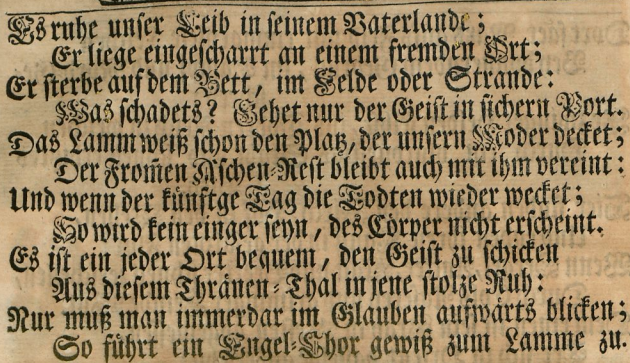 Es ruhe unser Leib in seinem Vaterlande;
Er liege eingescharrt an einem fremden Ort;
Er sterbe auf dem Bett, im Felde oder Strande:
Was schadets? Gehet nur der Geist in sichern Port.
Das Lamm weiß schon den Platz, der unsern Moder decket;
Der From̃en Aschen-Rest bleibt auch mit ihm vereint:
Und wenn der künftge Tag die Todten wieder wecket;
So wird kein einger seyn, des Cörper nicht erscheint.
Es ist ein jeder Ort bequem, den Geist zu schicken
Aus diesem Thränen-Thal in jene stolze Ruh:
Nur muß man immerdar im Glauben aufwärts blicken;
So führt ein Engel-Chor gewiß zum Lamme zu.